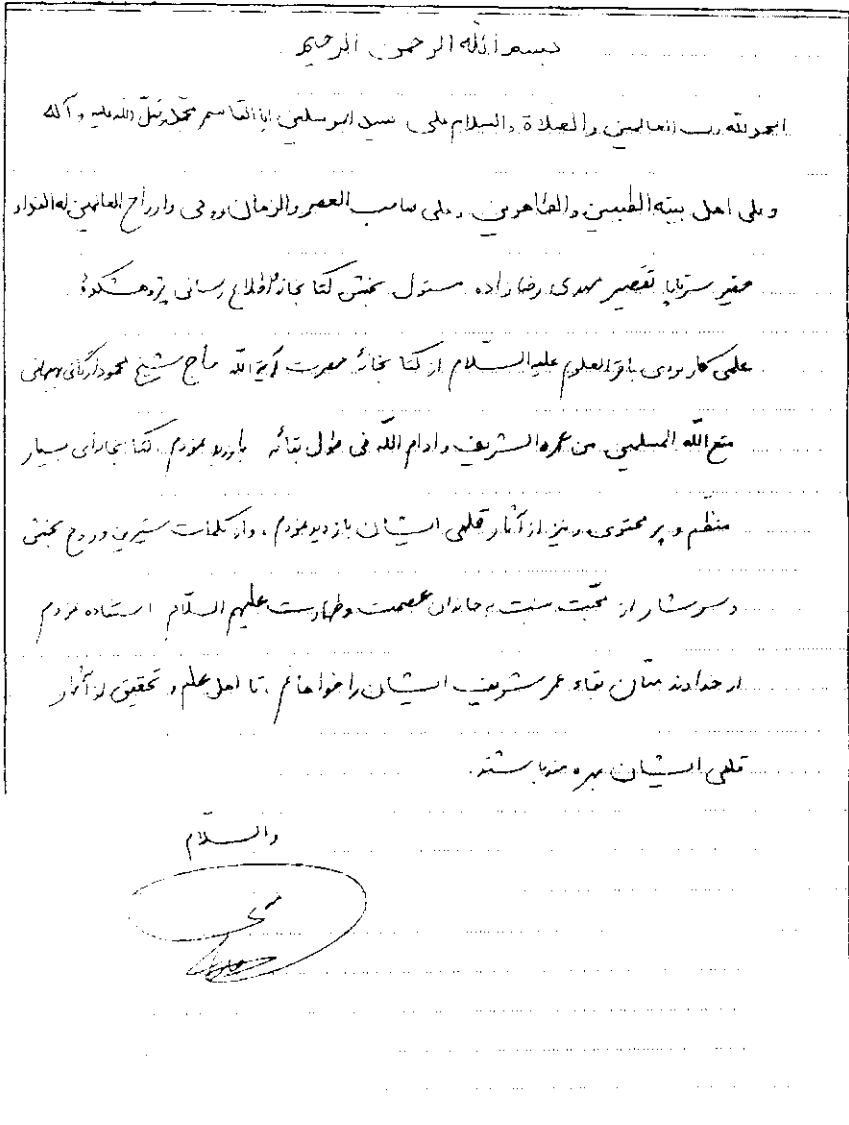 بسم الله الرحمن الرحیم
الحمد لله رب العالمین والصلاة والسلام علی سید المرسلین ابا القاسم محمد صلی الله علیه و آله
و علی اهل بیته الطیبین والطاهرین و علی صاحب العصر والزمان روحی وارواح العالمین له الفداء
حقیر سرتاپا تقصیر مهدی رضازاده مسئول بخش کتابخانه و اطلاع رسانی پژوهشکدهٔ
علمی کاربردی باقرالعلوم علیه السلام از کتابخانهٔ حضرت آیة الله حاج شیخ محمود ارگانی بهبهانی
متع الله المسلمین من عمره الشریف و ادام الله فی طول بقائه بازدید نمودم. کتابخانه‌ای بسیار
منظّم و پر محتوی و نیز از آثار قلمی ایشان بازدید نمودم، و از کلمات شیرین و روح بخش
و سرشار از محبّت نسبت به خاندان عصمت و طهارت علیهم السلام استفاده نمودم
از خداوند منّان بقاء عمر شریف ایشان را خواهانم، تا اهل علم و تحقیق از آثار
قلمی ایشان بهره مند باشند.
والسلام